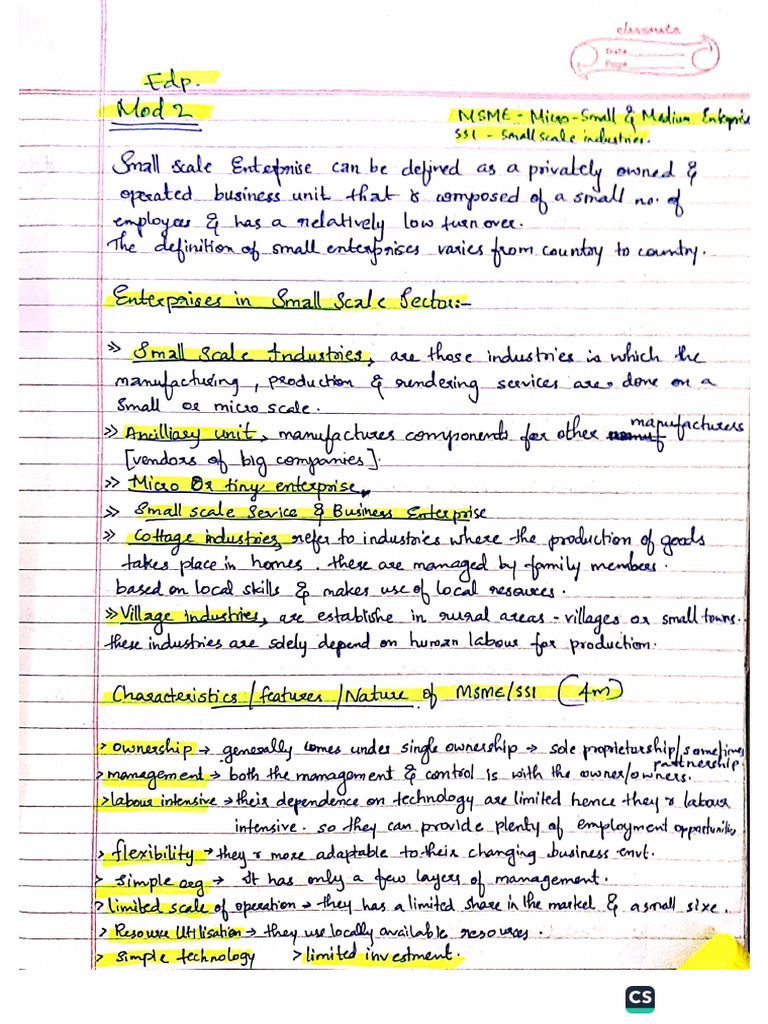 classmate
Date
Page
Edp.
Mod 2
MSME - Micro-Small & Medium Enterprise
SSI - Small scale industries.
Small scale Enterprise can be defined as a privately owned &
operated business unit that is composed of a small no. of
employees & has a relatively low turn over.
The definition of small enterprises varies from country to country.
Enterprises in Small Scale Sector:-
>> Small Scale Industries, are those industries is which the
manufacturing, production & rendering services are done on a
small or micro scale.
>> Ancilliary unit, manufactures components for other manufacturers
[vendors of big companies].
>> Micro Or tiny enterprise,
>> Small scale Service & Business Enterprise
>> Cottage industries, refer to industries where the production of goods
takes place in homes. these are managed by family members.
based on local skills & makes use of local resources.
>> Village industries, are establishe in rural areas - villages or small towns.
these industries are solely depend on human labour for production.
Characteristics / features / Nature of MSME/SSI (4m)
> ownership → generally comes under single ownership → sole proprietorship/sometimes partnership.
> management → both the management & control is with the owner/owners.
> labour intensive → their dependence on technology are limited hence they r labour
intensive. so they can provide plenty of employment opportunities
> flexibility → they r more adaptable to their changing business envt.
> simple org → It has only a few layers of management.
> limited scale of operation → they has a limited share in the market & a small size.
> Resource Utilisation → they use locally available resources.
> simple technology > limited investment.
CS